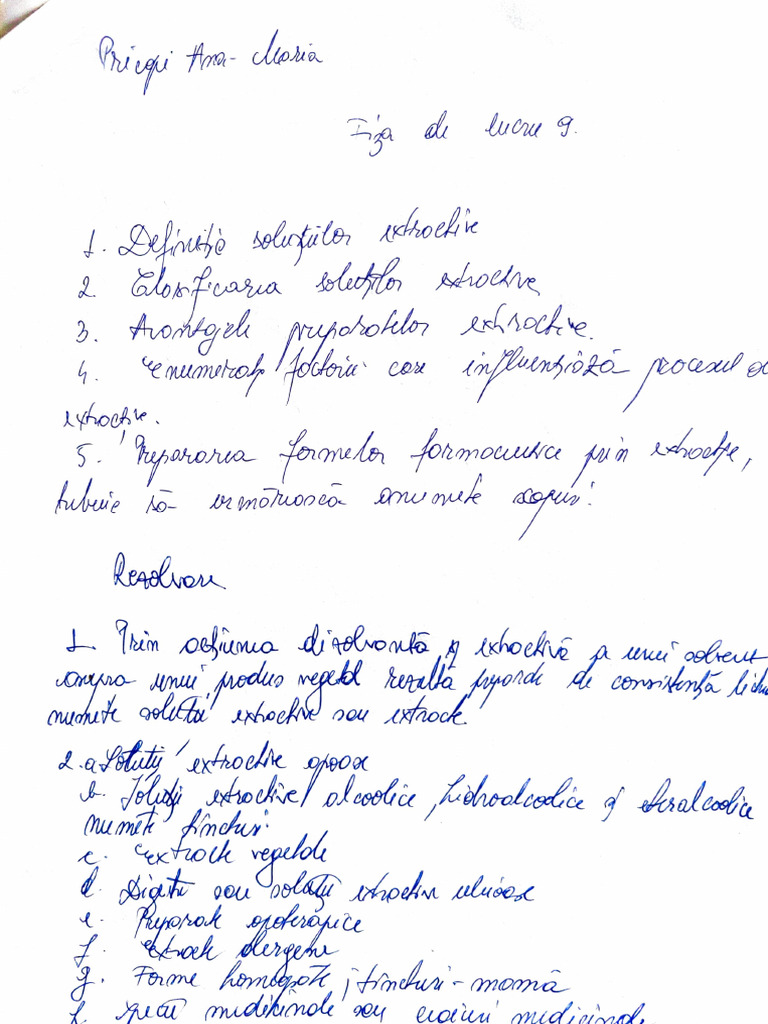 Pricopi Ana-Maria
Fișa de lucru 9.
1. Definiția soluțiilor extractive
2. Clasificarea soluțiilor extractive
3. Avantajele preparatelor extractive.
4. Enumerați factorii care influențiază procesul
extractive.
5. Prepararea formelor farmaceutice prin extracție,
trebuie să urmărească anumete scopuri.
Rezolvare
1. Prin acțiunea dizolvantă și extractivă a unui solvent
asupra unui produs vegetal rezultă preparate de consistență
numete soluții extractive sau extracte.
2. a. Soluții extractive apoase
b. Soluții extractive alcoolice, hidroalcoolice și eteralcoolice
numite tincturi.
c. Extracte vegetale
d. Digestii sau soluții extractive uleioase
e. Preparate opoterapice
f. Extracte alergene
g. Forme homeopate, tincturi-mamă
h. specii medicinale sau ceaiuri medicinale